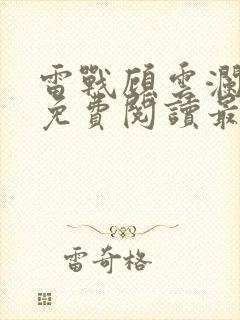 雷戰顧雲瀾
免費閱讀最
雷奇格